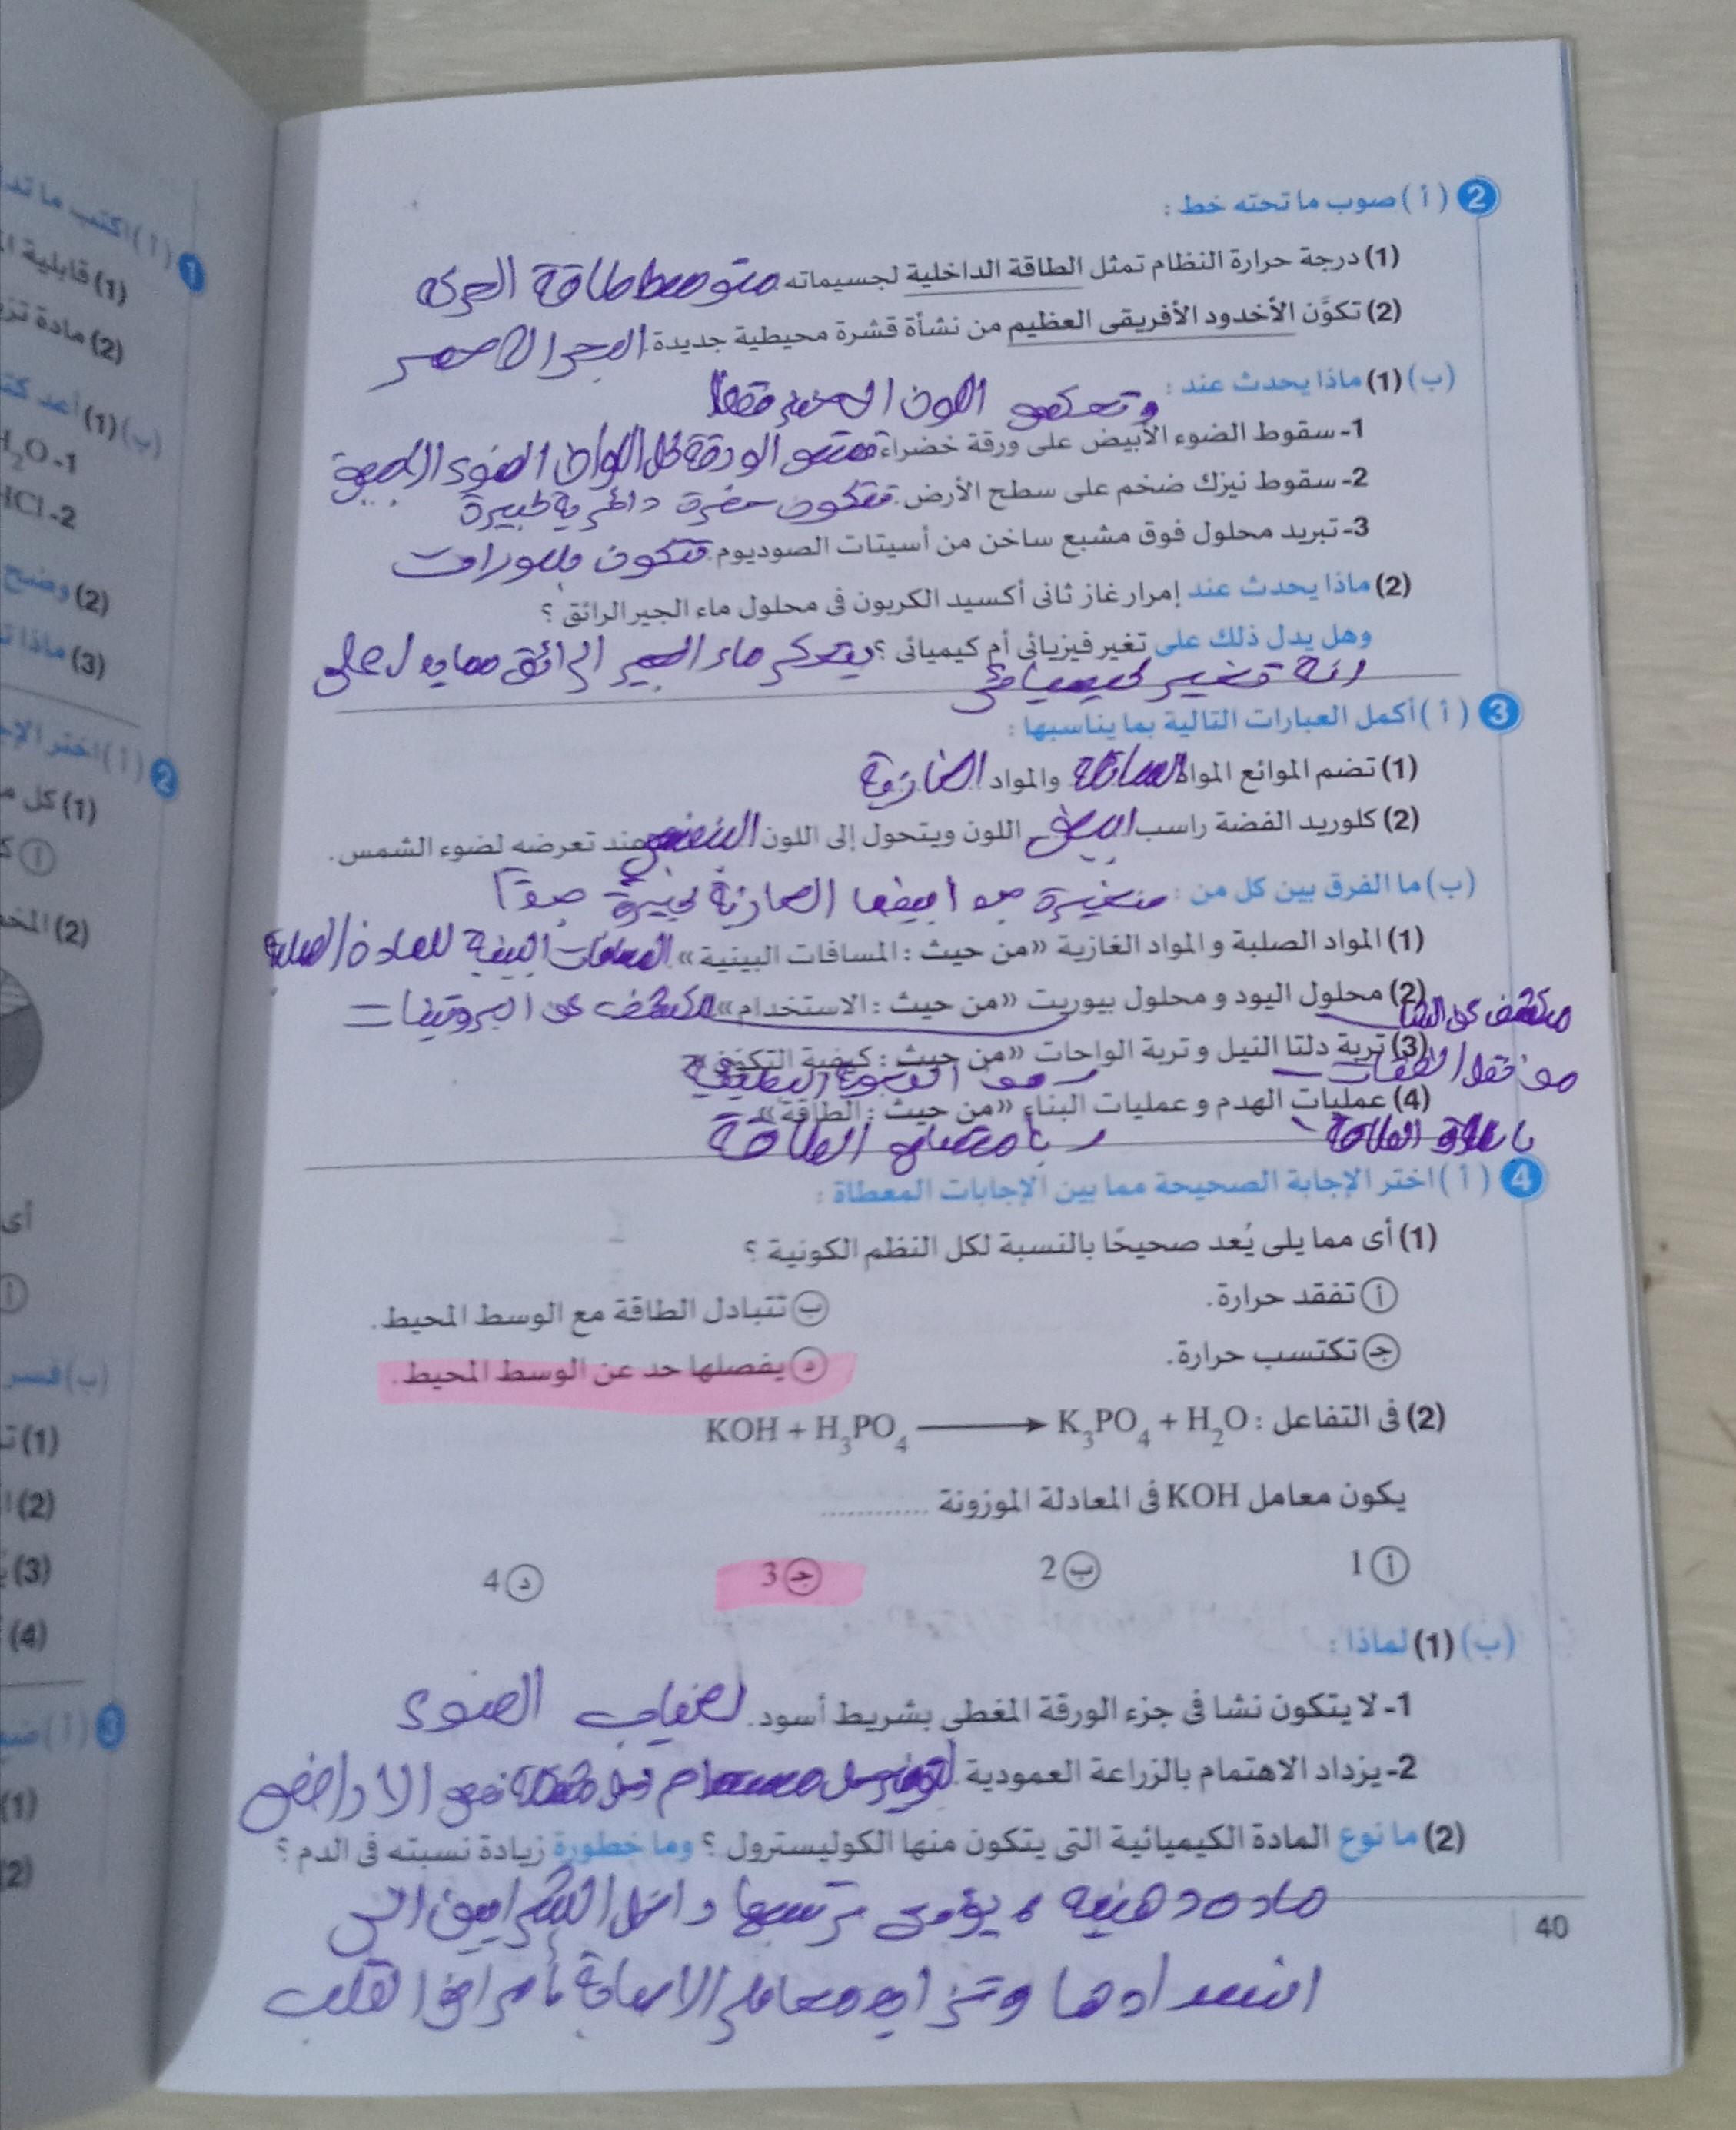 2 (أ) صوب ما تحته خط :
(1) درجة حرارة النظام تمثل الطاقة الداخلية لجسيماته. متوسط طاقة الحركة
(2) تكوَّن الأخدود الأفريقى العظيم من نشأة قشرة محيطية جديدة. البحر الاحمر
(ب) (1) ماذا يحدث عند :
وتعكس اللون الاخضر فقط
1- سقوط الضوء الأبيض على ورقة خضراء. تمتص الورقة كل الوان الضوء الابيض
2- سقوط نيزك ضخم على سطح الأرض. تتكون حفرة دائرية كبيرة
3- تبريد محلول فوق مشبع ساخن من أسيتات الصوديوم. تتكون بلورات
(2) ماذا يحدث عند إمرار غاز ثانى أكسيد الكربون فى محلول ماء الجير الرائق ؟
وهل يدل ذلك على تغير فيزيائى أم كيميائى ؟ يتعكر ماء الجير الرائق مما يدل على
انه تغير كيميائى
3 (أ) أكمل العبارات التالية بما يناسبها :
(1) تضم الموائع المواد السائلة والمواد الغازية
(2) كلوريد الفضة راسب ابيض اللون ويتحول إلى اللون البنفسجى عند تعرضه لضوء الشمس.
(ب) ما الفرق بين كل من : صغيرة جدا بينما الغازية كبيرة جدًا
(1) المواد الصلبة و المواد الغازية «من حيث : المسافات البينية». المسافات البينية للمادة الصلبة
(2) محلول اليود و محلول بيوريت «من حيث : الاستخدام» الكشف عن البروتينات
يكشف عن النشا
(3) تربة دلتا النيل و تربة الواحات «من حيث : كيفية التكوّن»
(4) عمليات الهدم و عمليات البناء «من حيث : الطاقة»
باطلاق الطاقة
بامتصاص الطاقة
4 (أ) اختر الإجابة الصحيحة مما بين الإجابات المعطاة :
(1) أى مما يلى يُعد صحيحًا بالنسبة لكل النظم الكونية ؟
أ تفقد حرارة. ب تتبادل الطاقة مع الوسط المحيط.
ج تكتسب حرارة. د يفصلها حد عن الوسط المحيط.
(2) فى التفاعل : KOH + H₃PO₄ ⟶ K₃PO₄ + H₂O
يكون معامل KOH فى المعادلة الموزونة ............
أ 1 ب 2 ج 3 د 4
(ب) (1) لماذا :
1- لا يتكون نشا فى جزء الورقة المغطى بشريط أسود. لغياب الضوء
2- يزداد الاهتمام بالزراعة العمودية. الاراضى
(2) ما نوع المادة الكيميائية التى يتكون منها الكوليسترول ؟ وما خطورة زيادة نسبته فى الدم ؟
مادة دهنية ، يؤدى ترسبها داخل الشرايين الى
انسدادها وتزايد معامل الاصابة بأمراض القلب
40
1 (أ) اكتب ما تد
(1) قابلية
(2) مادة تز
(ب) (1) أعد كت
H₂O -1
HCl -2
(2) وضح
(3) ماذا
2 (أ) اختر الإ
(1) كل
(2)
أى
(ب) فسر
(1)
(2)
(3)
(4)
3 (أ) ضع
(1)
(2)